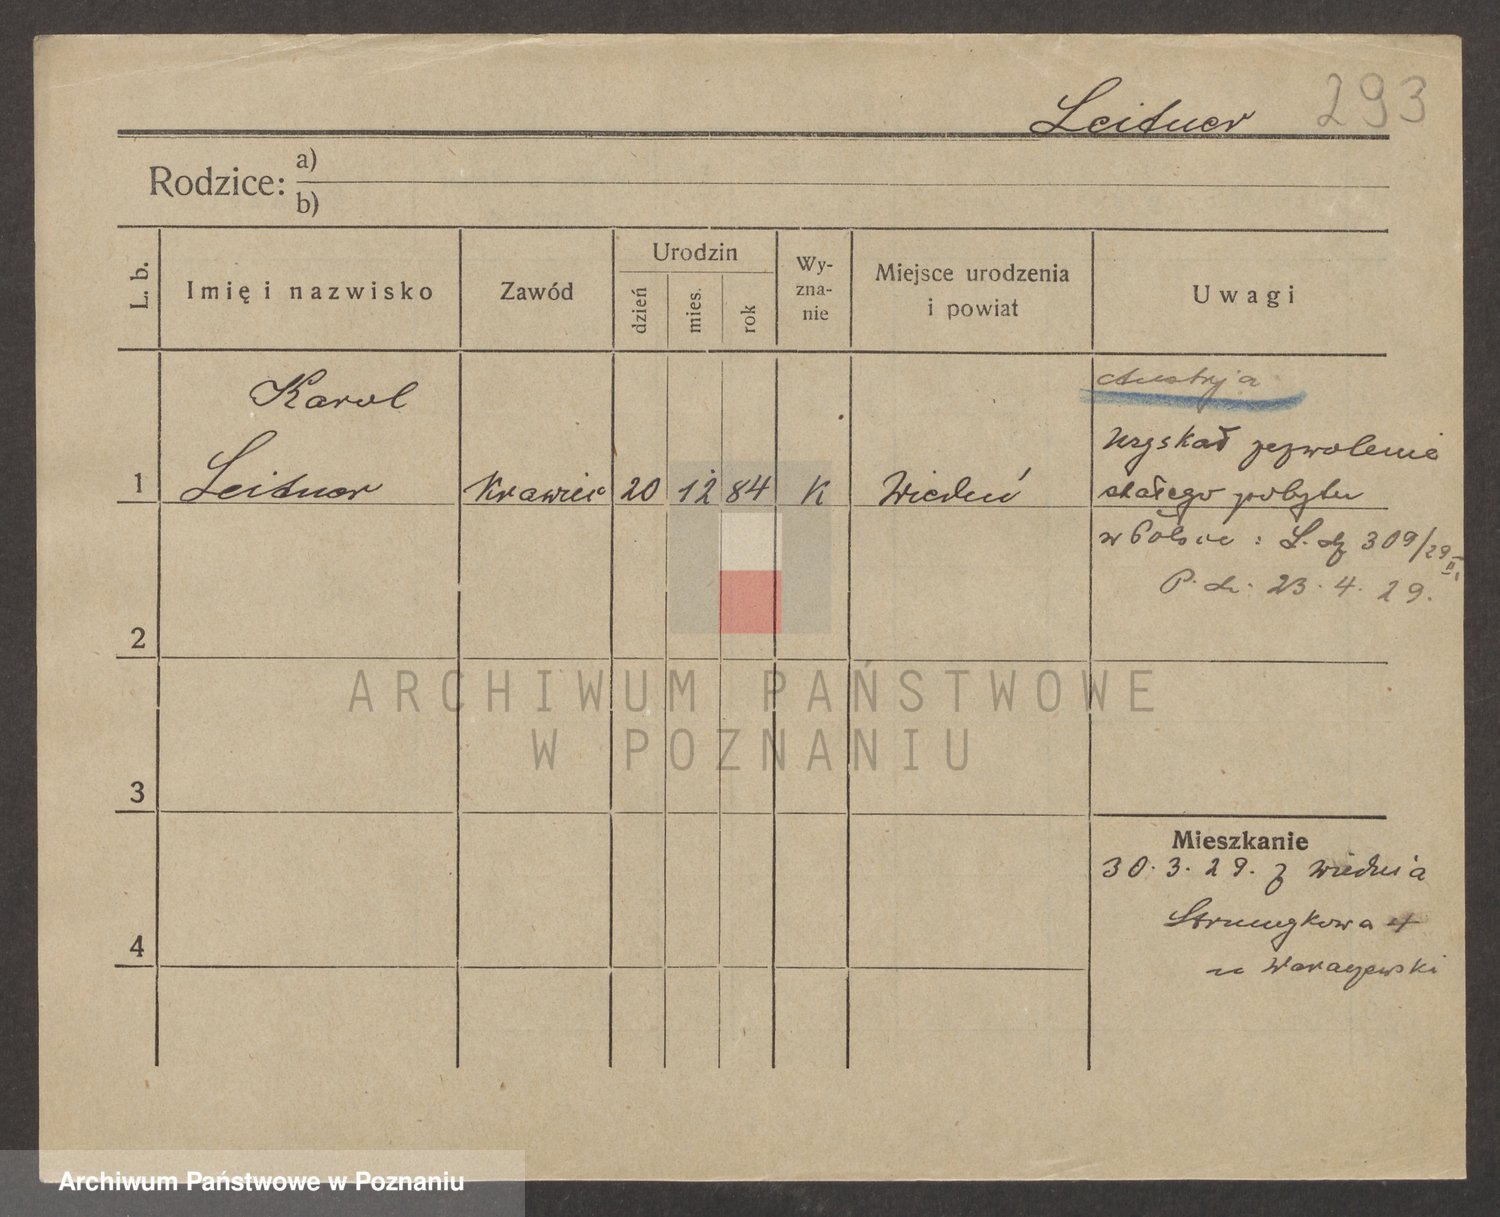 Leitner 293
Rodzice: a)
b)
L. b.
Imię i nazwisko
Zawód
Urodzin
dzień
mies.
rok
Wy-
zna-
nie
Miejsce urodzenia
i powiat
Uwagi
Karol
1 Leitner Krawiec 20 12 84 K Wiedeń
Austrja
Uzyskał zezwolenie
stałego pobytu
w Polsce : L. dz 309/29 II.
P. dn. 23. 4. 29.
2
3
4
Mieszkanie
30. 3. 29. z Wiednia
Strumykowa 4
u
ARCHIWUM PAŃSTWOWE
W POZNANIU
Archiwum Państwowe w Poznaniu